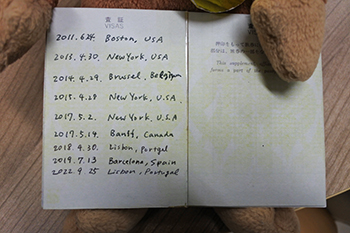 査証
VISAS
2011.6.24. Boston, USA
2013.4.30. New York, USA
2014.4.29. Brussel, Belgium
2015.4.28 New York, U.S.A.
2017.5.2. New York. U.S.A
2017.5.14. Banff, Canada
2018.4.30. Lisbon, Portgal
2019.7.13 Barcelona, Spain
2022.9.25 Lisbon, Portugal
This supplement
forms a part of the